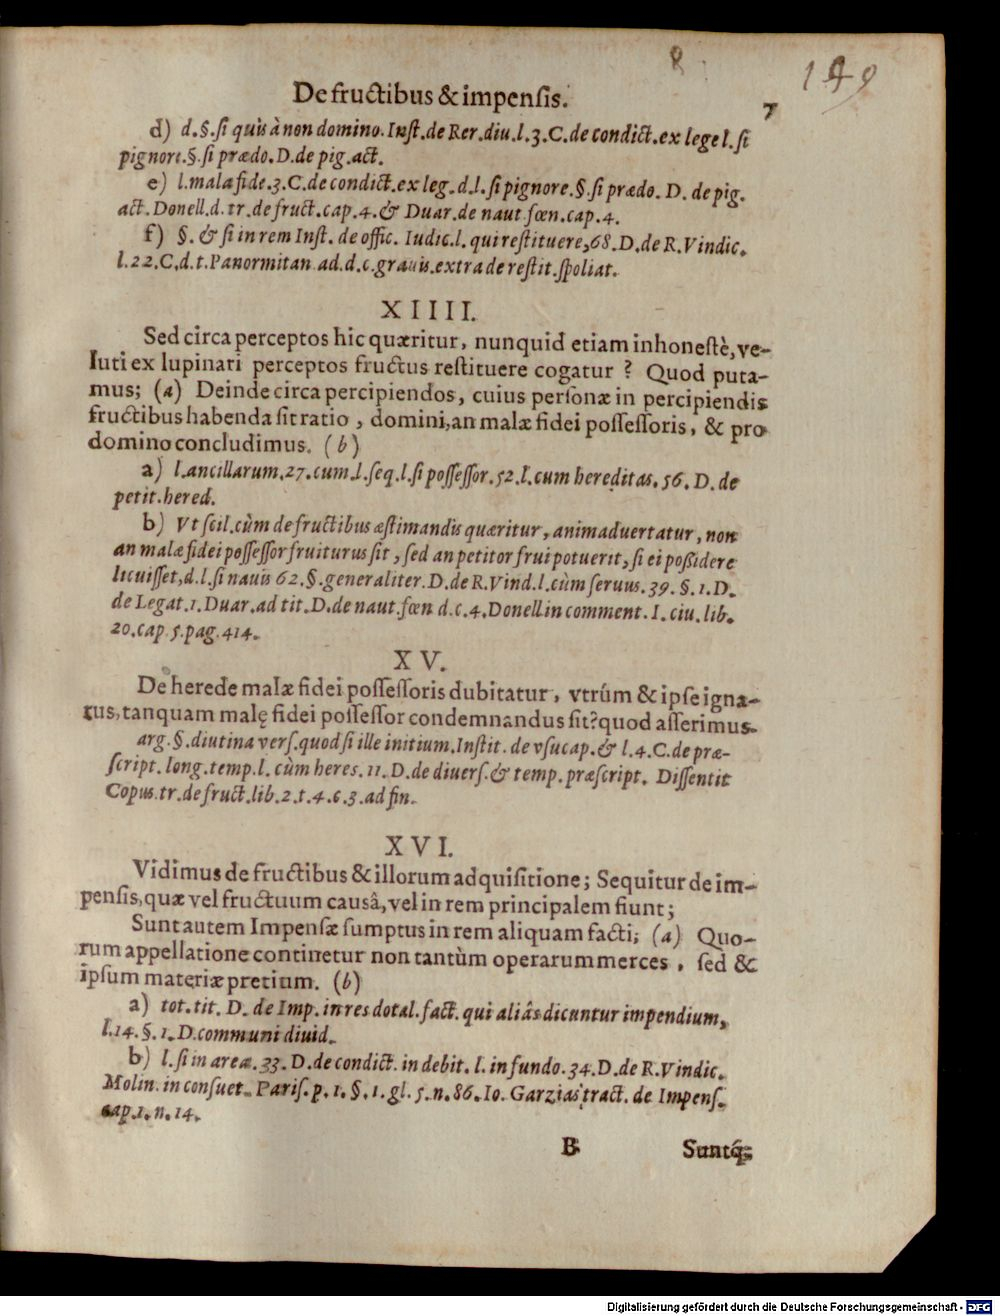 8
149
De fructibus & impensis.
7
d) d. §. si quis à non domino. Inst. de Rer. diu. l. 3. C. de condict. ex lege l. si
pignori. §. si prædo. D. de pig. act.
e) l. mala fide. 3. C. de condict. ex leg. d. l. si pignore. §. si prædo. D. de pig.
act. Donell. d. tr. de fruct. cap. 4. & Duar. de naut fœn. cap. 4.
f) §. & si in rem Inst. de offic. Iudic. l. qui restituere, 68. D. de R. Vindic.
l. 22. C. d. t. Panormitan ad. d. c. grauis. extra de restit. spoliat.
XIIII.
Sed circa perceptos hic quæritur, nunquid etiam inhonestè, ve-
luti ex lupinari perceptos fructus restituere cogatur? Quod puta-
mus; (a) Deinde circa percipiendos, cuius personæ in percipiendis
fructibus habenda sit ratio, domini, an malæ fidei possessoris, & pro
domino concludimus. (b)
a) l. ancillarum. 27. cum. l. seq. l. si possessor. 52. l. cum hereditas. 56. D. de
petit. hered.
b) Vt scil. cùm de fructibus æstimandis quæritur, animaduertatur, non
an malæ fidei possessor fruiturus sit, sed an petitor frui potuerit, si ei poßidere
licuisset, d. l. si nauis 62. §. generaliter. D. de R. Vind. l. cùm seruus. 39. §. 1. D.
de Legat. 1. Duar. ad tit. D. de naut. fœn d. c. 4. Donell in comment. I. ciu. lib.
20. cap. 5. pag. 414.
XV.
De herede malæ fidei possessoris dubitatur, vtrùm & ipse igna-
rus, tanquam malę fidei possessor condemnandus sit? quod asserimus.
arg. §. diutina vers. quod si ille initium. Instit. de vsucap. & l. 4. C. de præ-
script. long. temp. l. cùm heres. 11. D. de diuers. & temp. præscript. Dissentit
Copus. tr. de fruct. lib. 2. t. 4. c. 3. ad fin.
XVI.
Vidimus de fructibus & illorum adquisitione; Sequitur de im-
pensis, quæ vel fructuum causâ, vel in rem principalem fiunt;
Sunt autem Impensæ sumptus in rem aliquam facti; (a) Quo-
rum appellatione continetur non tantùm operarum merces, sed &
ipsum materiæ pretium. (b)
a) tot. tit. D. de Imp. in res dotal. fact. qui aliâs dicuntur impendium,
l. 14. §. 1. D. communi diuid.
b) l. si in areæ. 33. D. de condict. indebit. l. in fundo. 34. D. de R. Vindic.
Molin. in consuet. Paris. p. 1. §. 1. gl. 5. n. 86. Io. Garzias tract. de Impens.
cap. 1. n. 14.
B Suntq́;
Digitalisierung gefördert durch die Deutsche Forschungsgemeinschaft - DFG